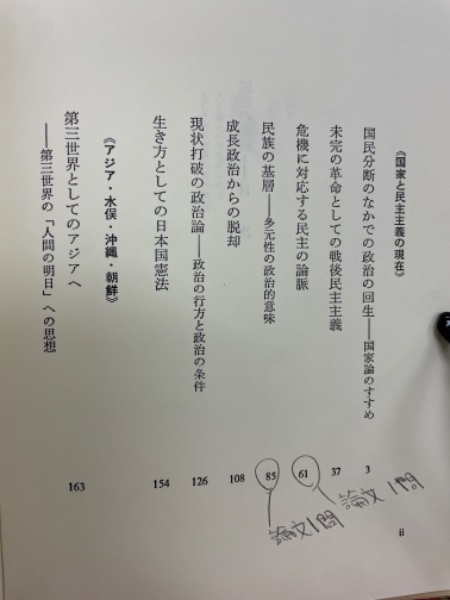 《国家と民主主義の現在》
国民分断のなかでの政治の回生——国家論のすすめ 3
未完の革命としての戦後民主主義 37
危機に対応する民主の論脈 61
民族の基層——多元性の政治的意味 85
成長政治からの脱却 108
現状打破の政治論——政治の行方と政治の条件 126
生き方としての日本国憲法 154
《アジア・水俣・沖縄・朝鮮》
第三世界としてのアジアへ
——第三世界の「人間の明日」への思想 163
論文1問
論文1問
ii